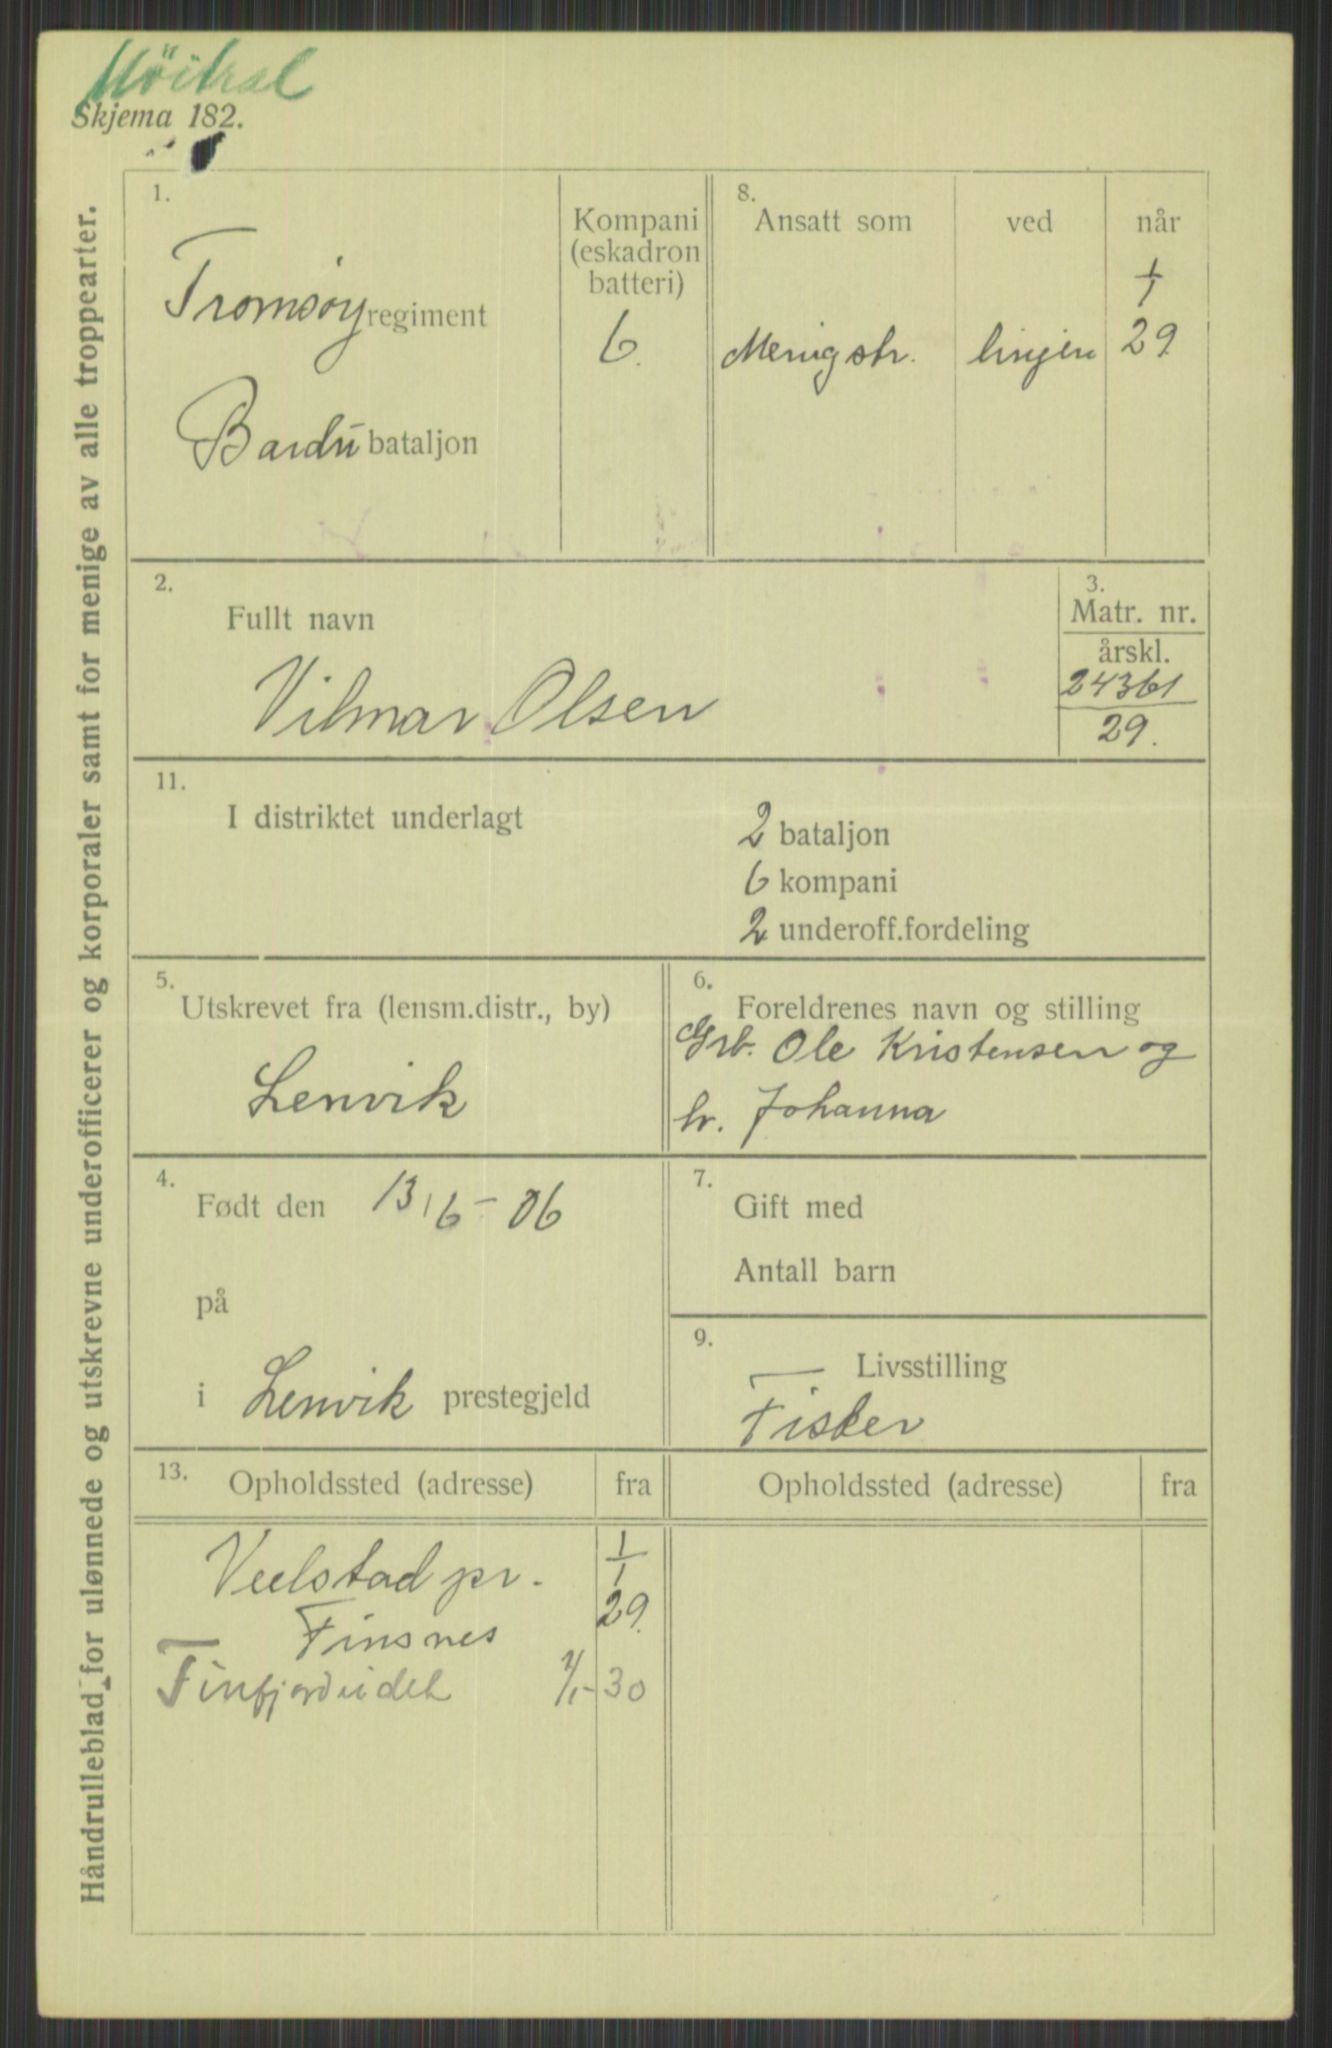 Skjema 182.
Håndrulleblad for ulønnede og utskrevne underofficerer og korporaler samt for menige av alle troppearter.
1.
Tromsøy regiment
Bardu bataljon
Kompani
(eskadron
batteri)
6.
8.
Ansatt som
ved
når
1/1
Menig str. linjen 29.
2.
Fullt navn
Vilmar Olsen
3.
Matr. nr.
årskl.
24361
29.
11.
I distriktet underlagt
2 bataljon
6 kompani
2 underoff.fordeling
5.
Utskrevet fra (lensm.distr., by)
Lenvik
6.
Foreldrenes navn og stilling
Grb. Ole Kristensen og
h. Johanna
4.
Født den 13/6-06
på
i Lenvik prestegjeld
7.
Gift med
Antall barn
9.
Livsstilling
Fisker
13.
Opholdssted (adresse) fra
Opholdssted (adresse) fra
pr. 1/1
Finsnes 29.
Finfjordeidet 1/1-30